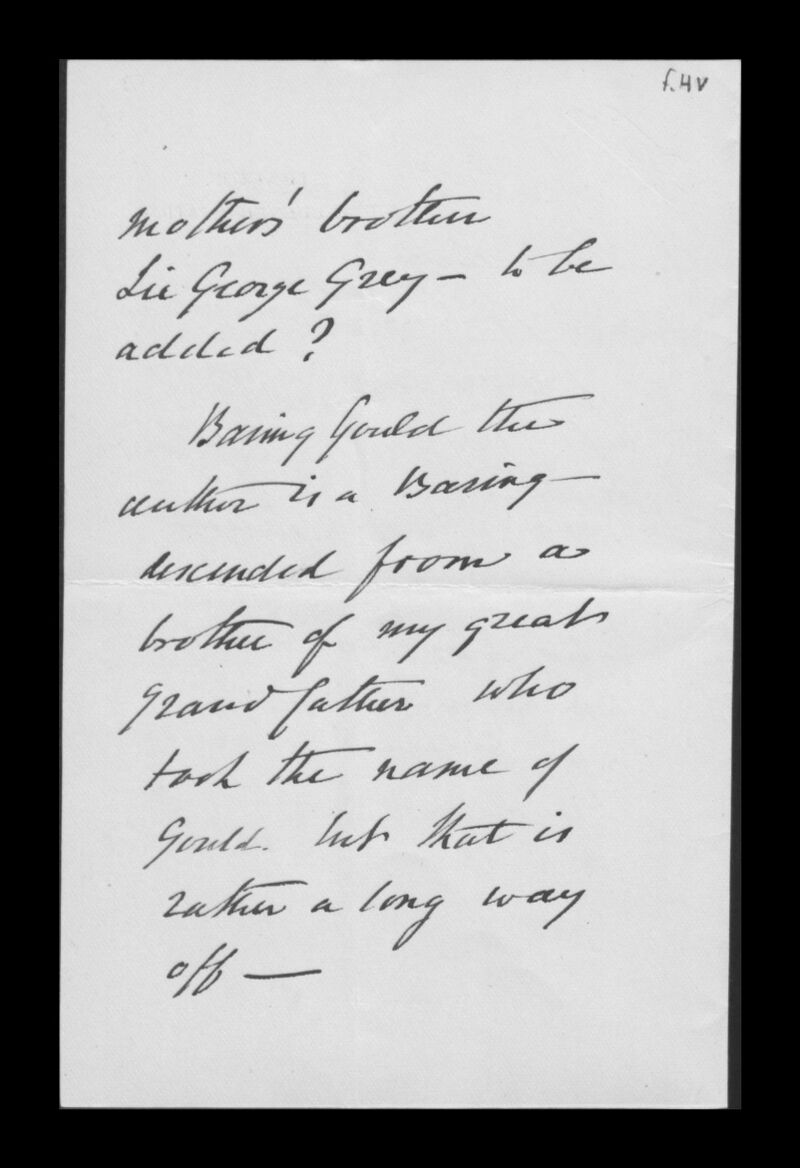 f.4v
mother's brother
Sir George Grey – to be
added?
Baring Gould the
author is a Baring –
descended from a
brother of my great
grandfather who
took the name of
Gould. but that is
rather a long way
off —